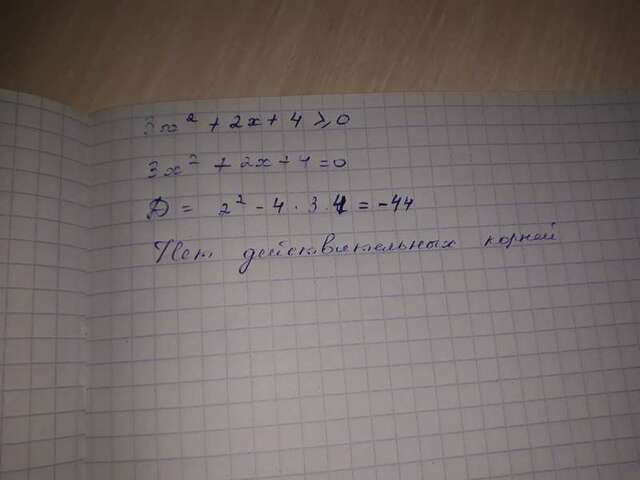 3x² + 2x + 4 ⩾ 0
3x² + 2x + 4 = 0
D = 2² - 4 · 3 · 4 = -44
Нет действительных корней